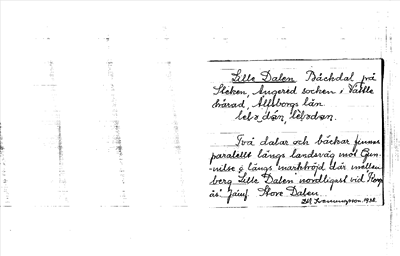 Lille Dalen Bäckdal på
Steken, Angered socken i Vättle
härad, Älfsborgs län.

Två dalar och bäckar finnes
paralellt längs landsväg mot Gun-
nilse o längs markhöjd där mellan
berg "Lille Dalen" nordligast vid
ås. Jämf. Store Dalen.
1938.